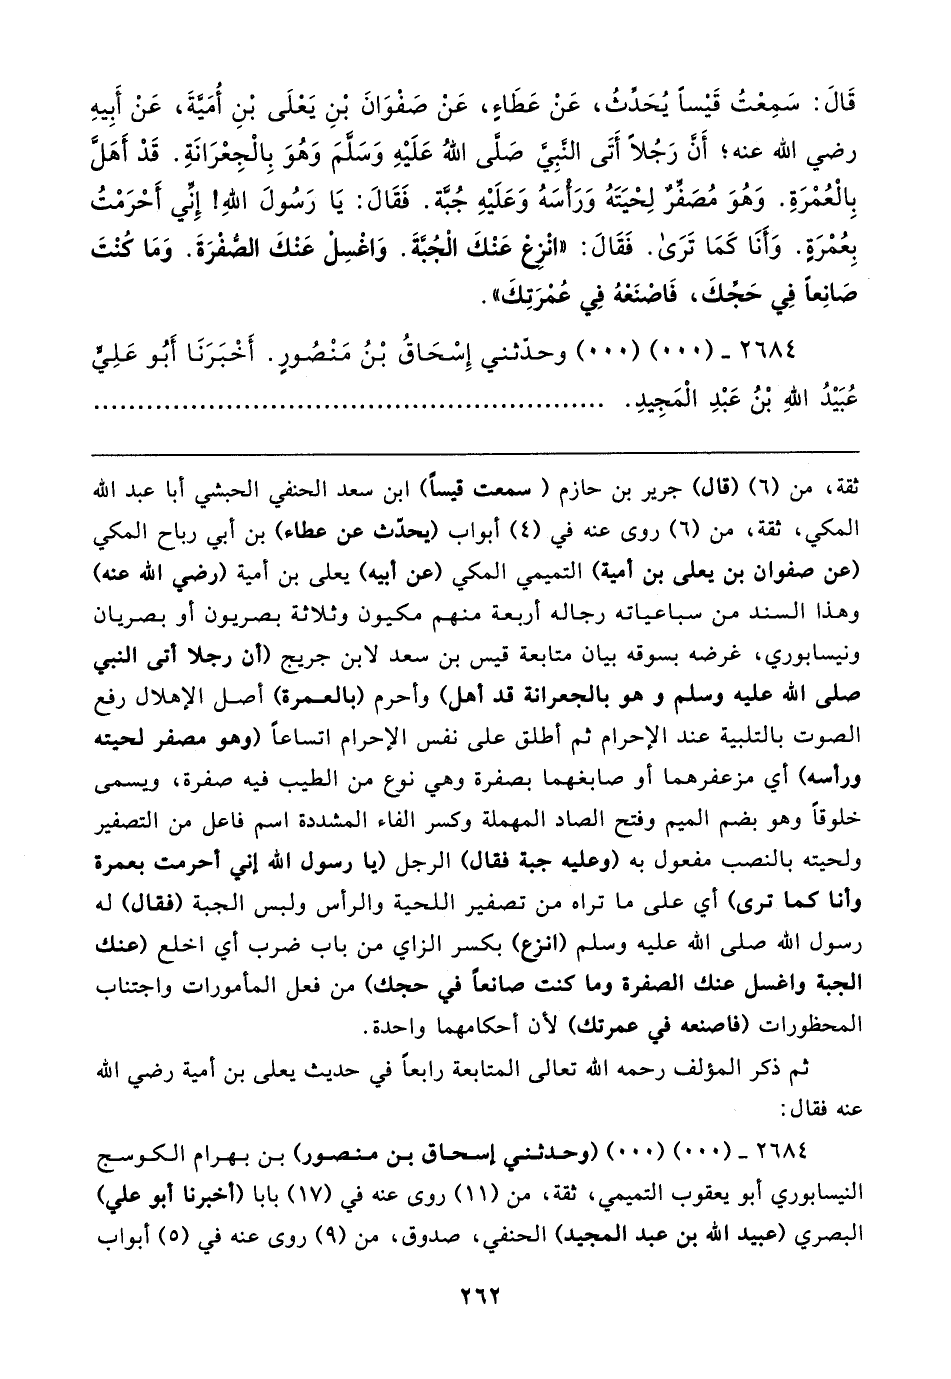 قَالَ: سَمِعْتُ قَيْساً يُحَدِّثُ، عَنْ عَطَاءٍ، عَنْ صَفْوَانَ بْنِ يَعْلَى بْنِ أُمَيَّةَ، عَنْ أَبِيهِ
رضي الله عنه؛ أَنَّ رَجُلاً أَتَى النَّبِيَّ صَلَّى اللهُ عَلَيْهِ وَسَلَّمَ وَهُوَ بِالْجِعْرَانَةِ. قَدْ أَهَلَّ
بِالْعُمْرَةِ. وَهُوَ مُصَفِّرٌ لِحْيَتَهُ وَرَأْسَهُ وَعَلَيْهِ جُبَّة. فَقَالَ: يَا رَسُولَ اللهِ! إِنِّي أَحْرَمْتُ
بِعُمْرَةٍ. وَأَنَا كَمَا تَرَىٰ. فَقَالَ: «انْزِعْ عَنْكَ الْجُبَّةَ. وَاغْسِلْ عَنْكَ الصُّفْرَةَ. وَمَا كُنْتَ
صَانِعاً فِي حَجِّكَ، فَاصْنَعْهُ فِي عُمْرَتِكَ».
٢٦٨٤ - (٠٠٠) (٠٠٠) وحدّثني إِسْحَاقُ بْنُ مَنْصُورٍ. أَخْبَرَنَا أَبُو عَلِيٍّ
عُبَيْدُ اللهِ بْنُ عَبْدِ الْمَجِيدِ. ....................................................
ثقة، من (٦) (قال) جرير بن حازم (سمعت قيساً) ابن سعد الحنفي الحبشي أبا عبد الله
المكي، ثقة، من (٦) روى عنه في (٤) أبواب (يحدّث عن عطاء) بن أبي رباح المكي
(عن صفوان بن يعلى بن أمية) التميمي المكي (عن أبيه) يعلى بن أمية (رضي الله عنه)
وهذا السند من سباعياته رجاله أربعة منهم مكيون وثلاثة بصريون أو بصريان
ونيسابوري، غرضه بسوقه بيان متابعة قيس بن سعد لابن جريج (أن رجلا أتى النبي
صلى الله عليه وسلم و هو بالجعرانة قد أهل) وأحرم (بالعمرة) أصل الإهلال رفع
الصوت بالتلبية عند الإحرام ثم أطلق على نفس الإحرام اتساعاً (وهو مصفر لحيته
ورأسه) أي مزعفرهما أو صابغهما بصفرة وهي نوع من الطيب فيه صفرة، ويسمى
خلوقاً وهو بضم الميم وفتح الصاد المهملة وكسر الفاء المشددة اسم فاعل من التصفير
ولحيته بالنصب مفعول به (وعليه جبة فقال) الرجل (يا رسول الله إني أحرمت بعمرة
وأنا كما ترى) أي على ما تراه من تصفير اللحية والرأس ولبس الجبة (فقال) له
رسول الله صلى الله عليه وسلم (انزع) بكسر الزاي من باب ضرب أي اخلع (عنك
الجبة واغسل عنك الصفرة وما كنت صانعاً في حجك) من فعل المأمورات واجتناب
المحظورات (فاصنعه في عمرتك) لأن أحكامهما واحدة.
ثم ذكر المؤلف رحمه الله تعالى المتابعة رابعاً في حديث يعلى بن أمية رضي الله
عنه فقال:
٢٦٨٤ - (٠٠٠) (٠٠٠) (وحدثني إسحاق بن منصور) بن بهرام الكوسج
النيسابوري أبو يعقوب التميمي، ثقة، من (١١) روى عنه في (١٧) بابا (أخبرنا أبو علي)
البصري (عبيد الله بن عبد المجيد) الحنفي، صدوق، من (٩) روى عنه في (٥) أبواب
٢٦٢